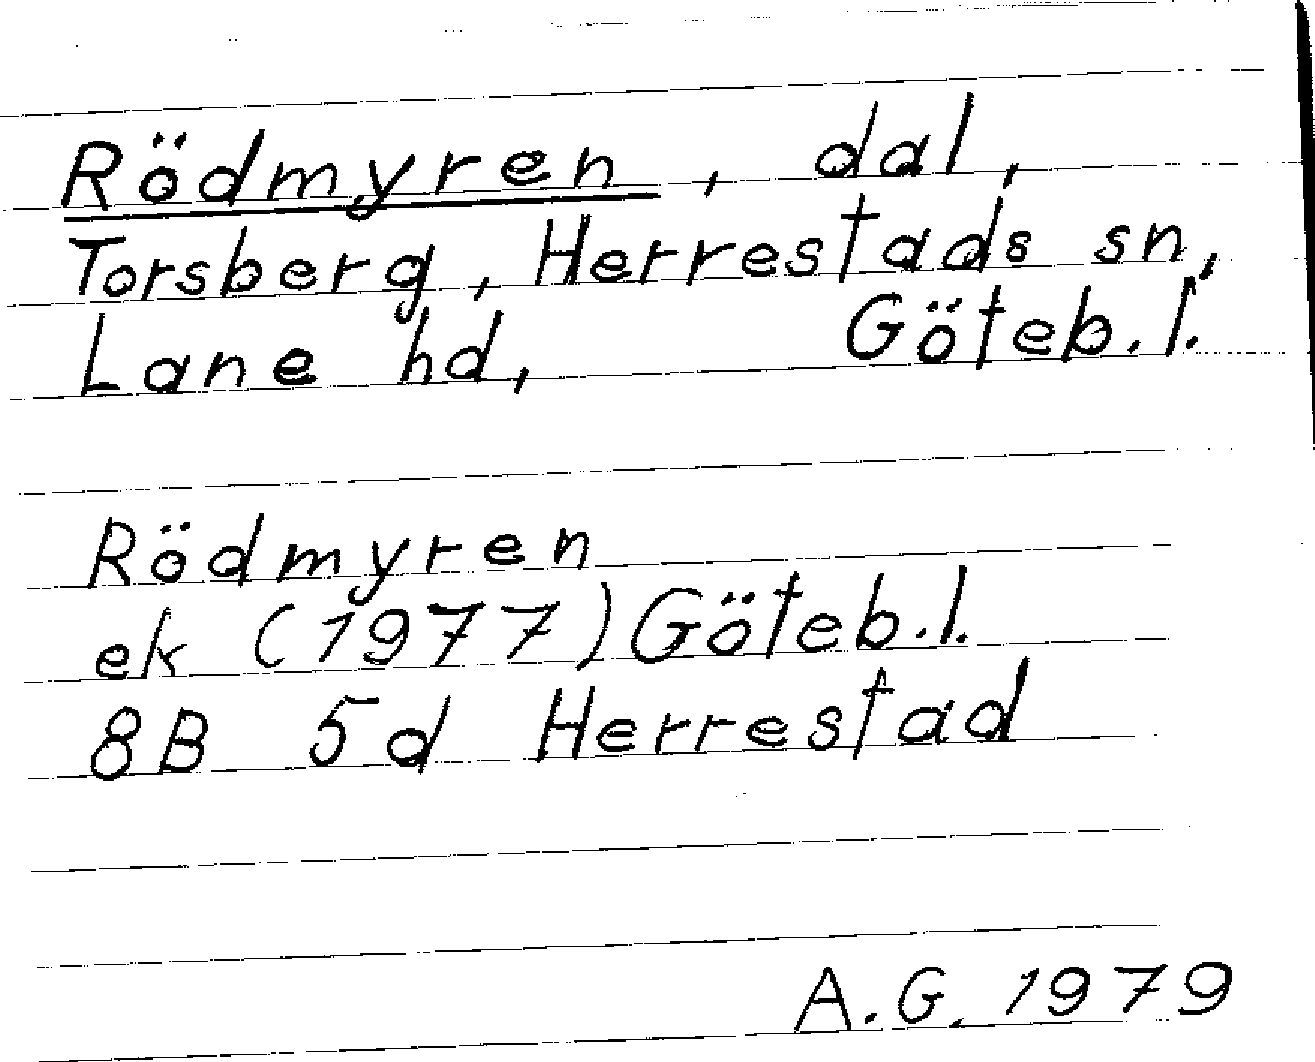 Rödmyren, dal,
Torsberg, Herrestads sn,
Lane hd, Göteb. l.
Rödmyren
ek (1977) Göteb. l.
8B 5d Herrestad
A. G. 1979